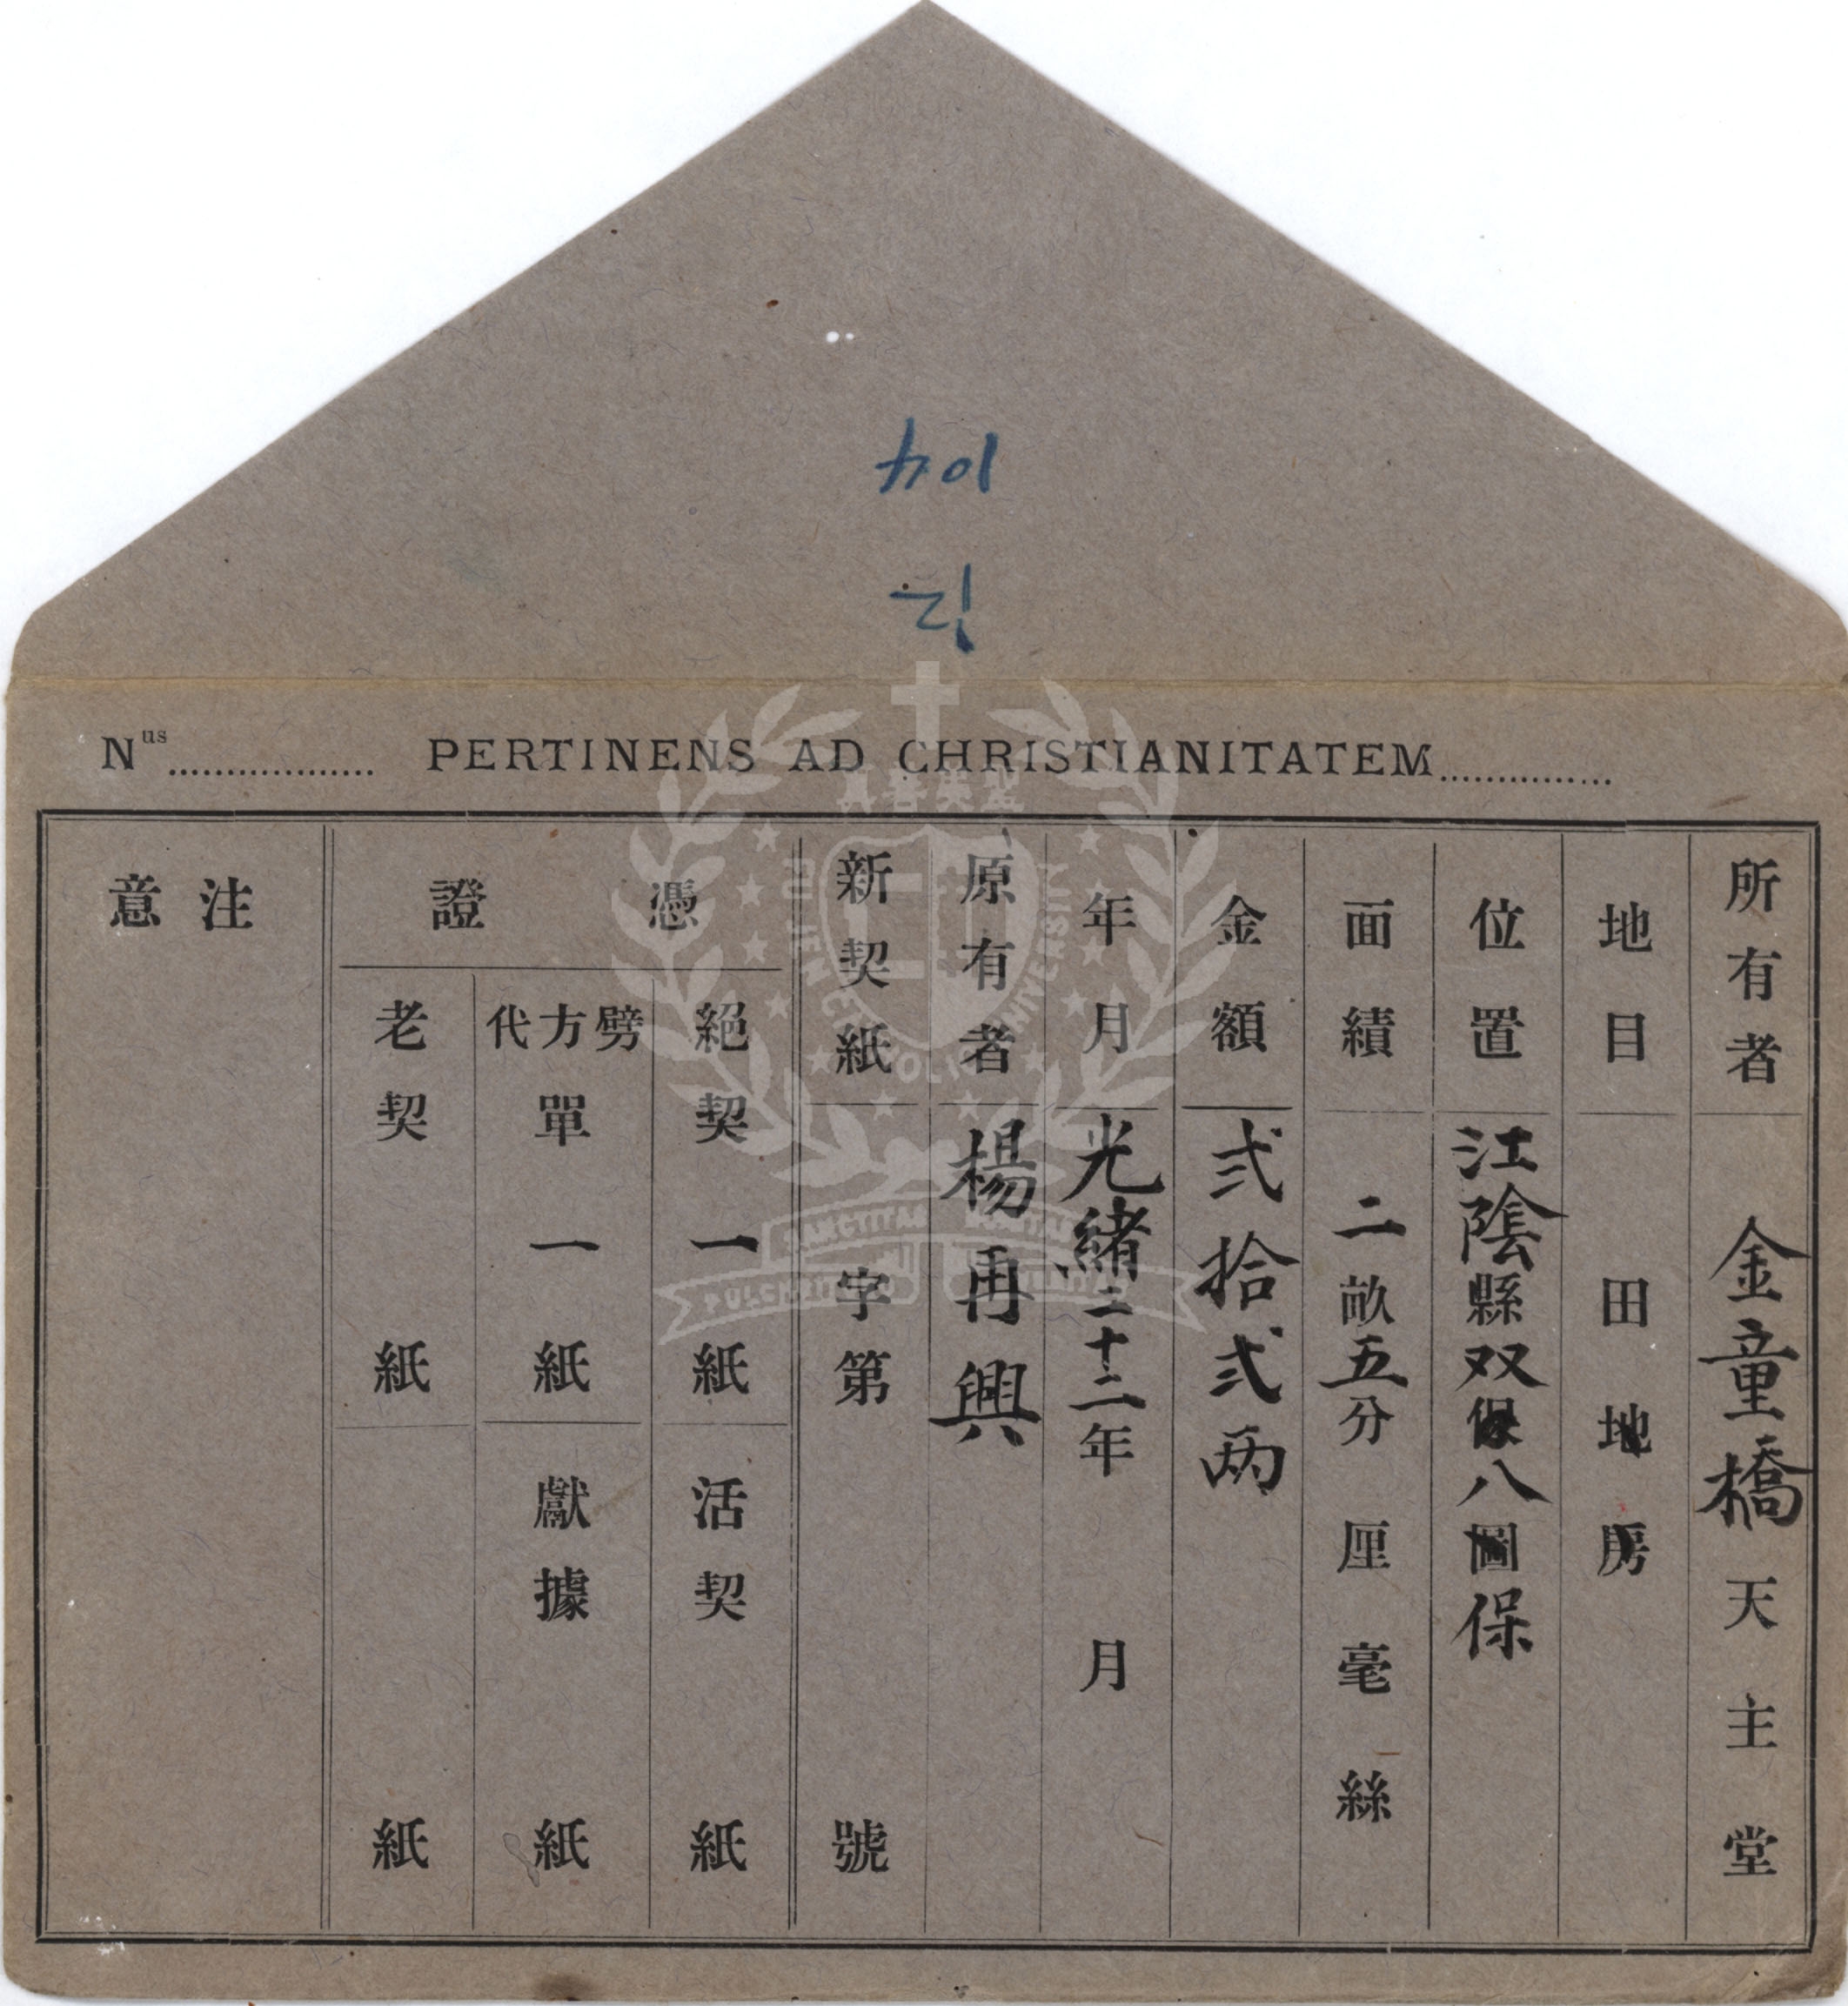 104
12
Nus.................. PERTINENS AD CHRISTIANITATEM...............
所有者 金童橋天主堂
地目 田地房
位置 江陰縣双保八圖保
面績 二畝五分 厘毫絲
金額 弍拾弍兩
年月 光緒二十二年 月
原有者 楊再興
新契紙 字第 號
憑證
絕契 一紙
活契 紙
劈方代單 一紙
獻據 紙
老契 紙
紙
注意